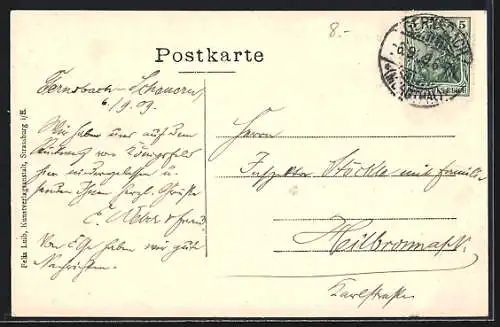 8.-
Postkarte
5
GERNSBACH
6.9.09.
(MURGTHAL)
Gernsbach-Scheuern
6/9.09.
Wir haben uns auf dem
Rückweg von Königsfeld
hier niedergelassen u.
senden Ihnen herzl. Grüße
E. Weber & Frau
Von Else haben wir gute
Nachrichten.
Herrn
Stöckle mit Familie
Heilbronn a/N.
Karlstraße
Felix Luib, Kunstverlagsanstalt, Strassburg i/E.